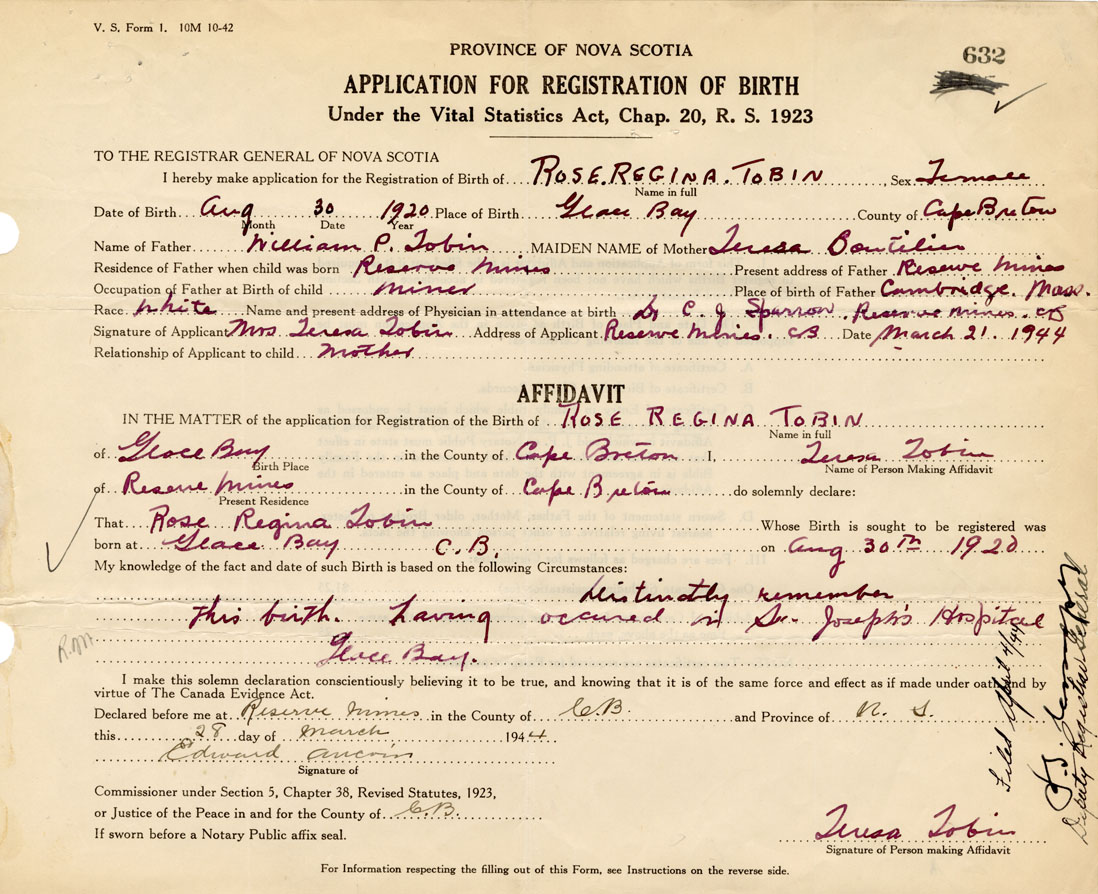 V. S. Form 1. 10M 10-42
PROVINCE OF NOVA SCOTIA
632
APPLICATION FOR REGISTRATION OF BIRTH
Under the Vital Statistics Act, Chap. 20, R. S. 1923
TO THE REGISTRAR GENERAL OF NOVA SCOTIA
I hereby make application for the Registration of Birth of ROSE REGINA TOBIN, Sex Female
Name in full
Date of Birth Aug 30 1920 Place of Birth Glace Bay County of Cape Breton
Month Date Year
Name of Father William P. Tobin MAIDEN NAME of Mother Teresa Boutilier
Residence of Father when child was born Reserve Mines Present address of Father Reserve Mines
Occupation of Father at Birth of child miner Place of birth of Father Cambridge, Mass.
Race white Name and present address of Physician in attendance at birth Dr C. J. Sparrow, Reserve Mines. CB
Signature of Applicant Mrs. Teresa Tobin Address of Applicant Reserve Mines. CB Date March 21. 1944
Relationship of Applicant to child Mother
AFFIDAVIT
IN THE MATTER of the application for Registration of the Birth of ROSE REGINA TOBIN
Name in full
of Glace Bay in the County of Cape Breton I, Teresa Tobin
Birth Place Name of Person Making Affidavit
of Reserve Mines in the County of Cape Breton do solemnly declare:
Present Residence
That Rose Regina Tobin Whose Birth is sought to be registered was
born at Glace Bay C.B. on Aug 30th 1920
My knowledge of the fact and date of such Birth is based on the following Circumstances:
Distinctly remember
this birth. having occured in St. Joseph's Hospital
Glace Bay.
R.M.
I make this solemn declaration conscientiously believing it to be true, and knowing that it is of the same force and effect as if made under oath and by
virtue of The Canada Evidence Act.
Declared before me at Reserve Mines in the County of C.B. and Province of N. S.
this 28 day of March 1944
Edward Aucoin
Signature of
Commissioner under Section 5, Chapter 38, Revised Statutes, 1923,
or Justice of the Peace in and for the County of C.B.
If sworn before a Notary Public affix seal.
Teresa Tobin
Signature of Person making Affidavit
For Information respecting the filling out of this Form, see Instructions on the reverse side.
Filed April 4/44
Deputy Registrar General